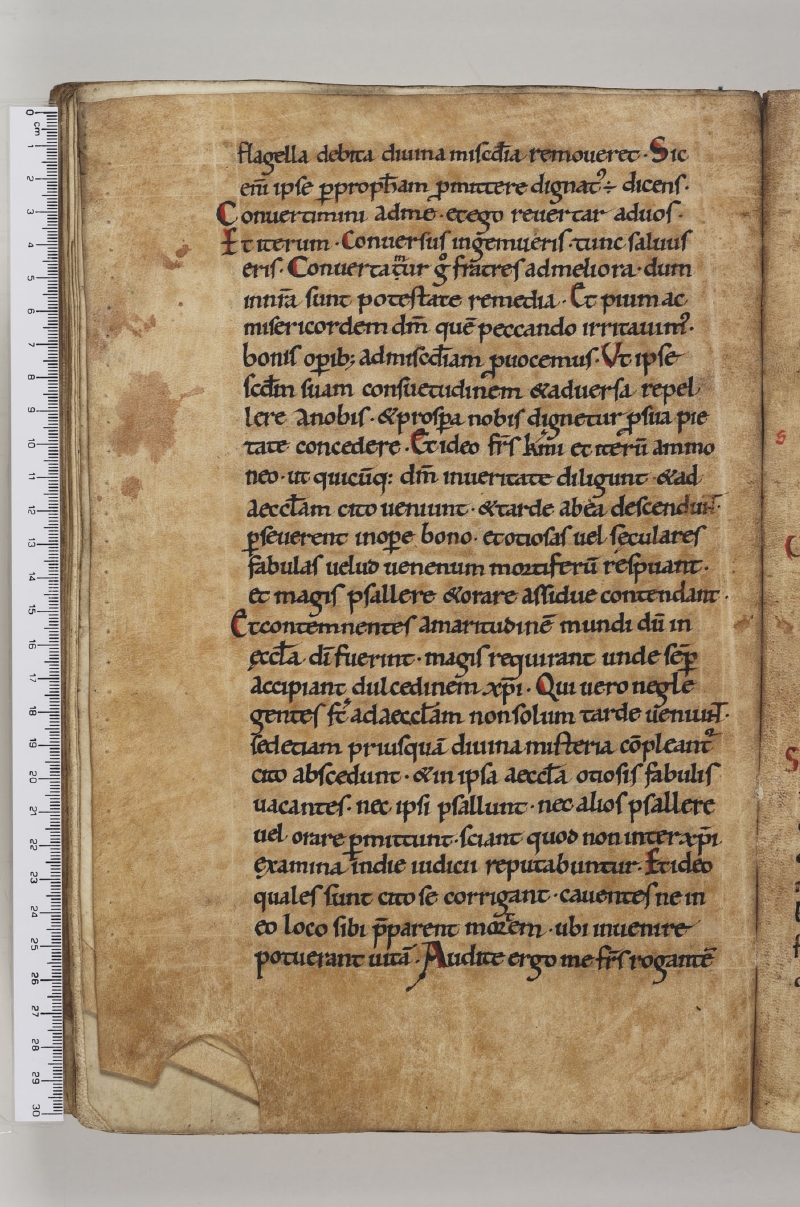 flagella debita diuina misc̄dia remoueret. Sic
eni̅ ipse ꝑproph̄am ꝓmittere dignatꝰ ÷ dicens.
Conuertimini adme. etego reuertar aduos.
Et iterum. Conuersus ingemueris. tunc saluus
eris. Conuertamur gͦ fratres admeliora. dum
inn̅ra sunt potestate remedia. Et pium ac
misericordem dm̅ quē peccando irritauimꝰ.
bonis oꝑib; admisc̄diam ꝓuocemus. Vt ipse
scd̅m suam consuetudinem &aduersa repel
lere anobis. &prosꝑa nobis dignetur ꝓsua pie
tate concedere. Et ideo fr̅s kmi et iterū ammo
neo. ut quicūq: dm̅ inueritate diligunt &ad
aeccl̅am cito ueniunt. &tarde abea descendunt.
ꝑseuerent inoꝑe bono. etotiosas uel seculares
fabulas uelud uenenum mortiferū respuant.
et magis psallere &orare assidue contendant.
Etcontemnentes amaritudinē mundi dū in
ęccl̅a di̅ fuerint. magis requirant unde semꝑ
accipiant dulcedinem xp̅i. Qui uero negle
gentes st̅ adaeccl̅am nonsolum tarde ueniunt.
sedetiam priusquā diuina misteria cōpleant᷒
cito abscedunt. &in ipsa aeccl̅a otiosis fabulis
uacantes. nec ipsi psallunt. nec alios psallere
uel orare ꝑmittunt. sciant quod non inter xp̅i
examina indie iudicii reputabuntur. Et ideo
quales sunt cito se corrigant. cauentes ne in
eo loco sibi p̅parent mortem. ubi inuenire
potuerant uitā. Audite ergo me fr̅s rogantē